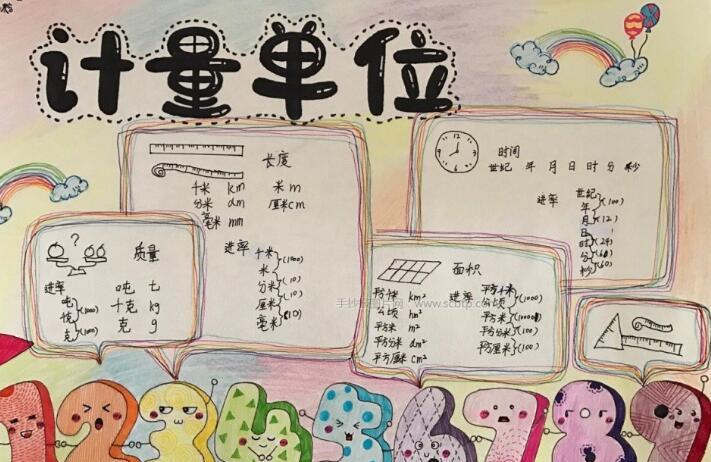 计量单位
长度
千米 km 米 m
分米 dm 厘米 cm
毫米 mm
进率
千米
(1000)
米
(10)
分米
(10)
厘米
(10)
毫米
12
3
6
9
时间
世纪 年 月 日 时 分 秒
进率
世纪
(100)
年
(12)
月
日
(24)
时
(60)
分
(60)
秒
?
质量
进率
吨 t
千克 kg
克 g
吨
(1000)
(1000)
克
面积
平方千米 km²
公顷 hm²
平方米 m²
平方分米 dm²
平方厘米 cm²
进率
平方千米
公顷
平方米
(100)
平方分米
(100)
平方厘米
1 2 3 4 5 6 7 8 9